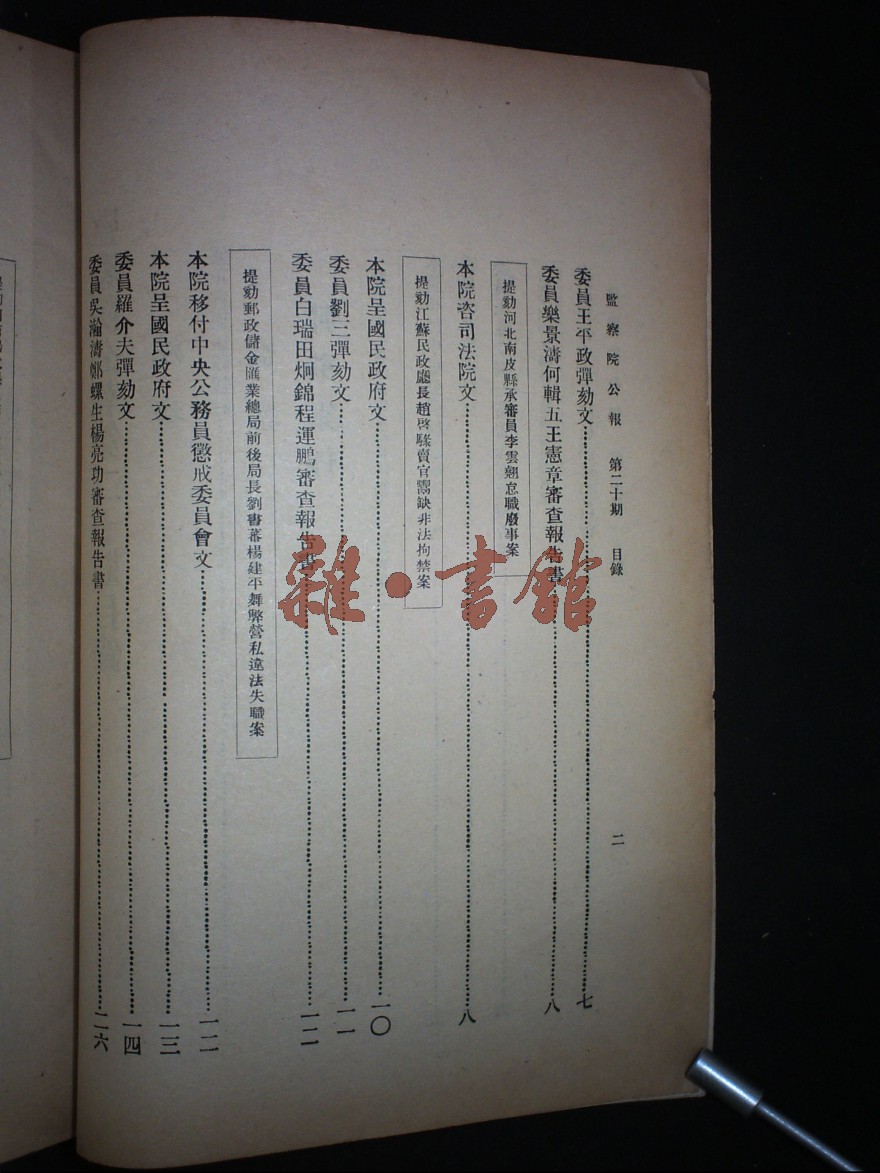 監察院公報 第二十期 目錄 二
委員王平政彈劾文 七
委員樂景濤何輯五王憲章審查報告書 八
提劾河北南皮縣承審員李雲翹怠職廢事案
本院咨司法院文 八
提劾江蘇民政廳長趙啓騄賣官鬻缺非法拘禁案
本院呈國民政府文 一〇
委員劉三彈劾文 一一
委員白瑞田炯錦程運鵬審查報告書 一二
提劾郵政儲金匯業總局前後局長劉書蕃楊建平舞弊營私違法失職案
本院移付中央公務員懲戒委員會文 一二
本院呈國民政府文 一三
委員羅介夫彈劾文 一四
委員吳瀚濤鄭螺生楊亮功審查報告書 二六
雜·書館